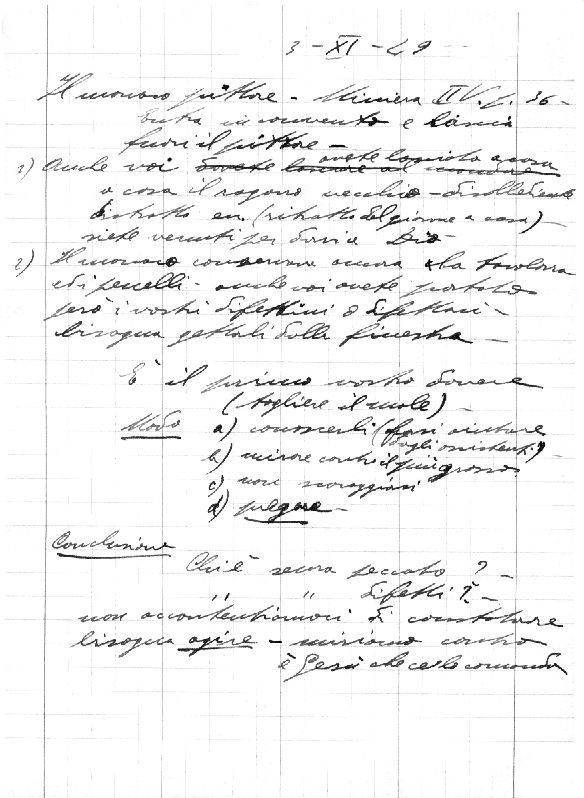 3 - XI - 49
Il monaco pittore - Miniera IV. f. 36 -
Entra in convento e lascia
fuori il pittore -
1) Anche voi dovete lasciare al
avete lasciato a casa
a casa il ragazzo vecchio - disobbediente
distratto ecc. (ritratto del giovane a casa) -
siete venuti per darvi a Dio
2) Il monaco conservava ancora la tavolozza
ed i pennelli - anche voi avete portato
però i vostri difettini o difettacci -
bisogna gettarli dalla finestra -
È il primo vostro dovere
(togliere il male) -
Modo a) conoscerli (farsi aiutare
dagli assistenti)
b) mirare contro il più grosso
c) non scoraggiarsi
d) pregare -
Conclusione
Chi è senza peccato ? -
" " difetti ? -
non accontentiamoci di constatare
bisogna agire - miriamo contro
è Gesù che ce lo comanda